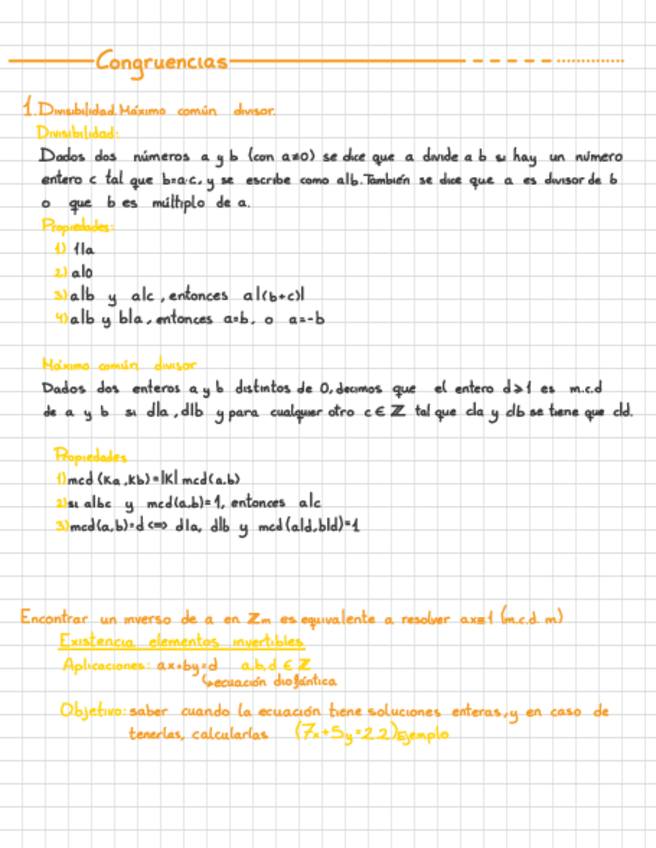 Congruencias
1. Divisibilidad. Máximo común divisor.
Divisibilidad:
Dados dos números a y b (con a≠0) se dice que a divide a b si hay un número
entero c tal que b=a·c, y se escribe como a|b. También se dice que a es divisor de b
o que b es múltiplo de a.
Propiedades:
1) 1|a
2) a|0
3) a|b y a|c, entonces a|(b+c)|
4) a|b y b|a, entonces a=b, o a=-b
Máximo común divisor
Dados dos enteros a y b distintos de 0, decimos que el entero d≥1 es m.c.d
de a y b si d|a, d|b y para cualquier otro c∈ℤ tal que c|a y c|b se tiene que c|d.
Propiedades
1) mcd (Ka, Kb)=|K| mcd(a,b)
2) si a|bc y mcd(a,b)=1, entonces a|c
3) mcd(a,b)=d <=> d|a, d|b y mcd(a|d,b|d)=1
Encontrar un inverso de a en ℤm es equivalente a resolver ax≡1 (m.c.d. m)
Existencia elementos invertibles
Aplicaciones: ax+by=d a,b,d ∈ ℤ
↳ecuación diofántica
Objetivo: saber cuando la ecuación tiene soluciones enteras, y en caso de
tenerlas, calcularlas (7x+5y=2.2) Ejemplo